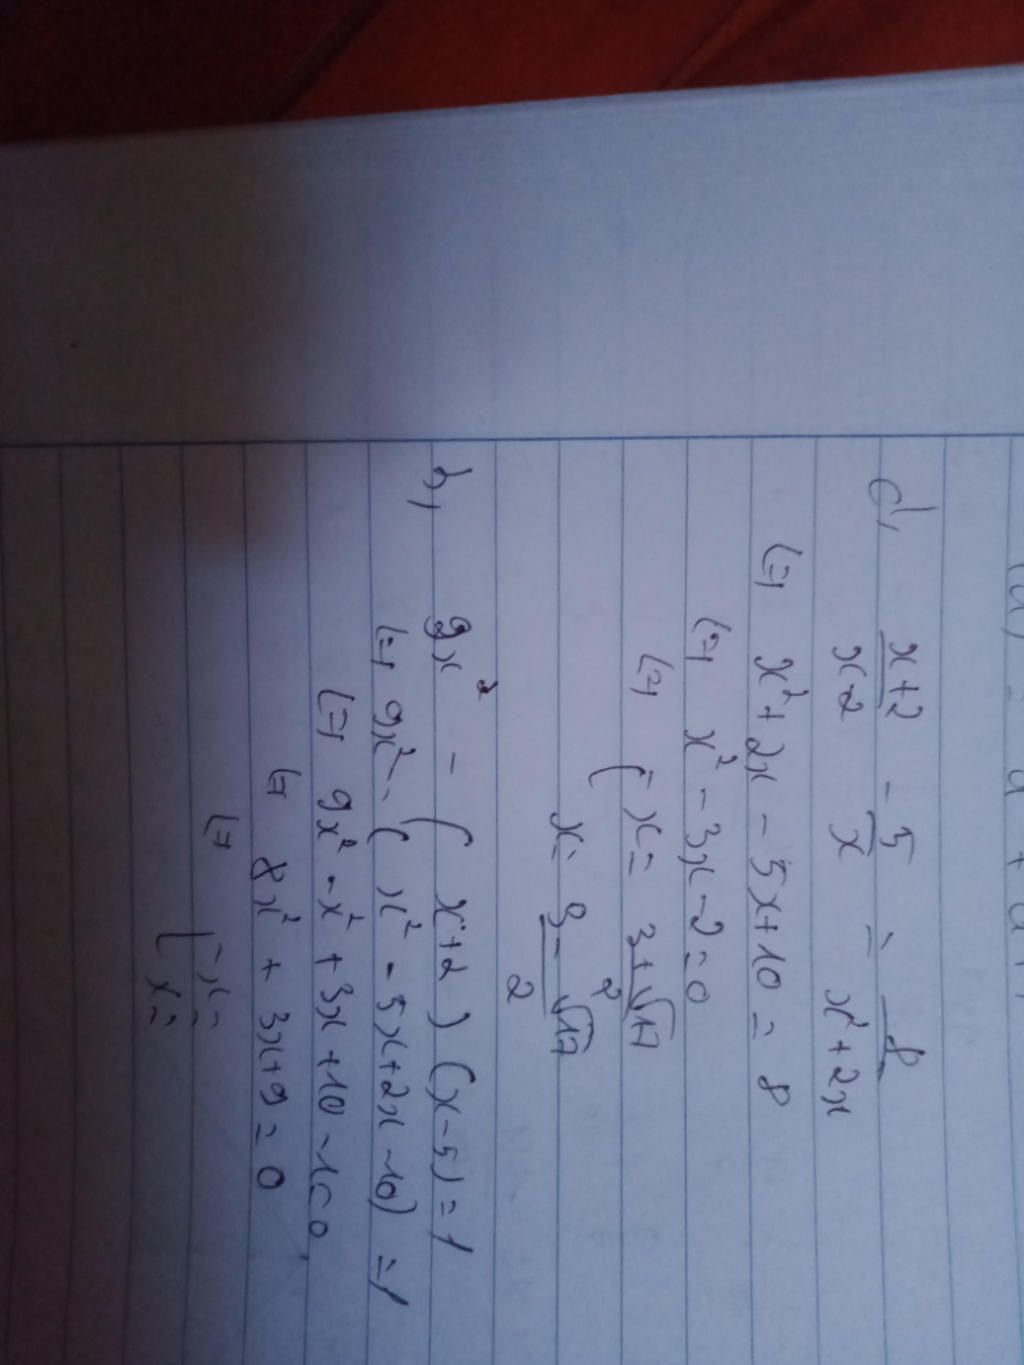 d, \frac{x+2}{x-2} - \frac{5}{x} = \frac{8}{x^2+2x}
(=) x^2 + 2x - 5x + 10 = 8
(=) x^2 - 3x - 2 = 0
(=) [ x = \frac{3+\sqrt{17}}{2}
x = \frac{3-\sqrt{17}}{2}
b, 9x^2 - (x+2)(x-5) = 1
(=) 9x^2 - (x^2 - 5x + 2x - 10) = 1
(=) 9x^2 - x^2 + 3x + 10 - 1 = 0
(=) 8x^2 + 3x + 9 = 0
(=) [ x =
x =